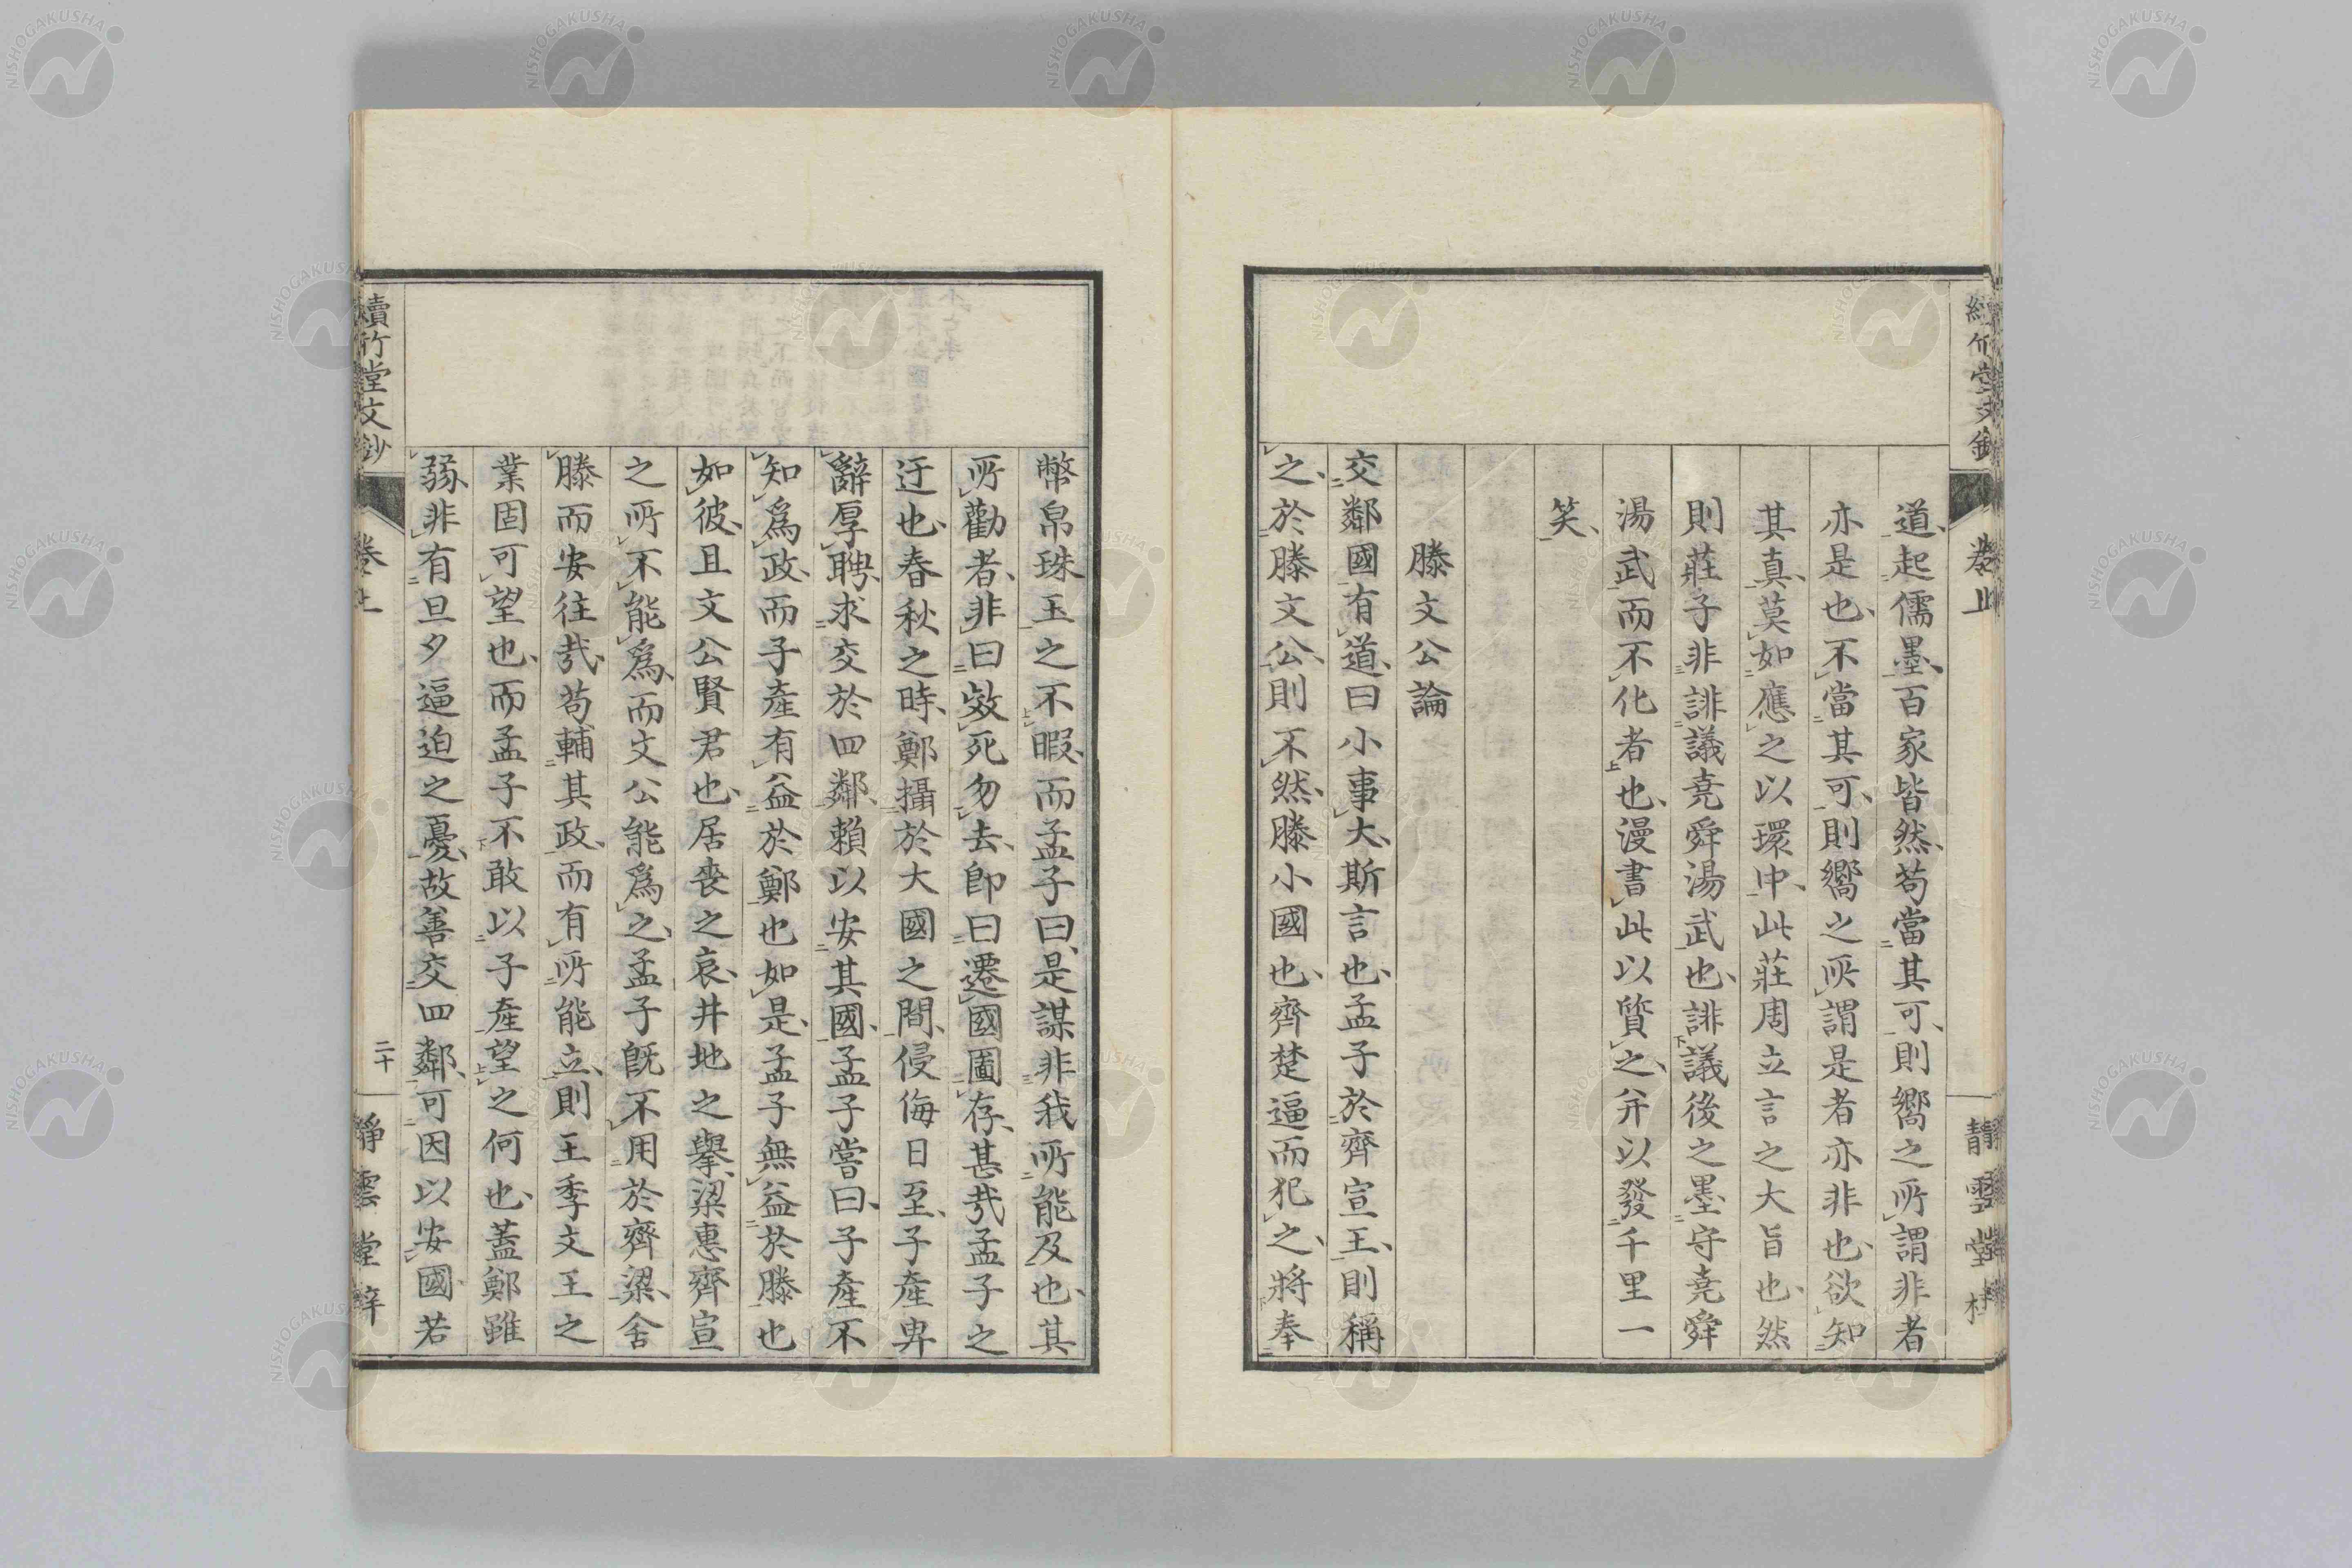 道、起儒墨、百家皆然、苟當其可、則嚮之所謂非者
亦是也、不當其可、則嚮之所謂是者亦非也、欲知
其真、莫如應之以環中、此莊周立言之大旨也、然
則莊子非誹議堯舜湯武也、誹議後之墨守堯舜
湯武而不化者也、漫書此以質之、幷以發千里一
笑、
滕文公論
交鄰國有道、曰小事大、斯言也、孟子於齊宣王、則稱
之、於滕文公、則不然、滕小國也、齊楚逼而犯之、將奉
幣帛珠玉之不暇、而孟子曰、是謀非我所能及也、其
所勸者、非曰效死勿去、卽曰遷國圖存、甚哉孟子之
迂也、春秋之時、鄭攝於大國之間、侵侮日至、子產卑
辭厚聘、求交於四鄰、賴以安其國、孟子嘗曰、子產不
知爲政、而子產有益於鄭也如是、孟子無益於滕也
如彼、且文公賢君也、居喪之哀、井地之擧、梁惠齊宣
之所不能爲、而文公能爲之、孟子旣不用於齊梁、舍
滕而安往哉、苟輔其政、而有所能立、則王季文王之
業固可望也、而孟子不敢以子產望之何也、蓋鄭雖
弱、非有旦夕逼迫之憂、故善交四鄰、可因以安國、若
續竹堂文鈔
卷上
二十
靜雲堂梓